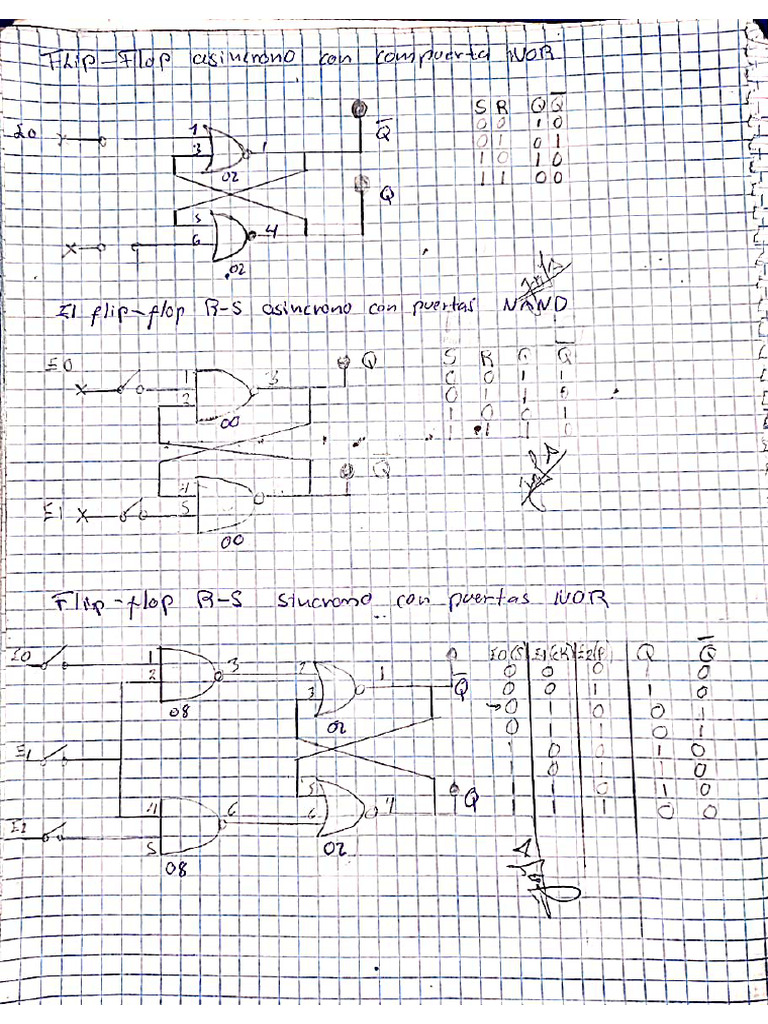 Flip-Flop asincrono con compuerta NOR
S R Q Q̅
E0 1 Q̅ 0 0 1 0
3 1 0 1 0 1
02 1 0 1 0
Q 1 1 0 0
5 4
6
02
El flip-flop R-S asincrono con puertas NAND
E0 1 3 Q S R Q Q̅
2 0 0 1 1
00 0 1 1 0
1 0 0 1
1 1 1 0
4 Q̅
E1 5
00
Flip-flop R-S sincrono con puertas NOR
E0 1 3 2 1 Q̅ E0(S) E1(CK) E2(R) Q Q̅
2 3 0 0 0 1 0
08 02 0 0 1 1 0
0 1 0 0 1
0 1 1 0 1
E1 1 0 0 1 0
1 0 1 1 0
4 6 5 4 Q 1 1 0 1 0
E2 5 6 1 1 1 0 0
08 02